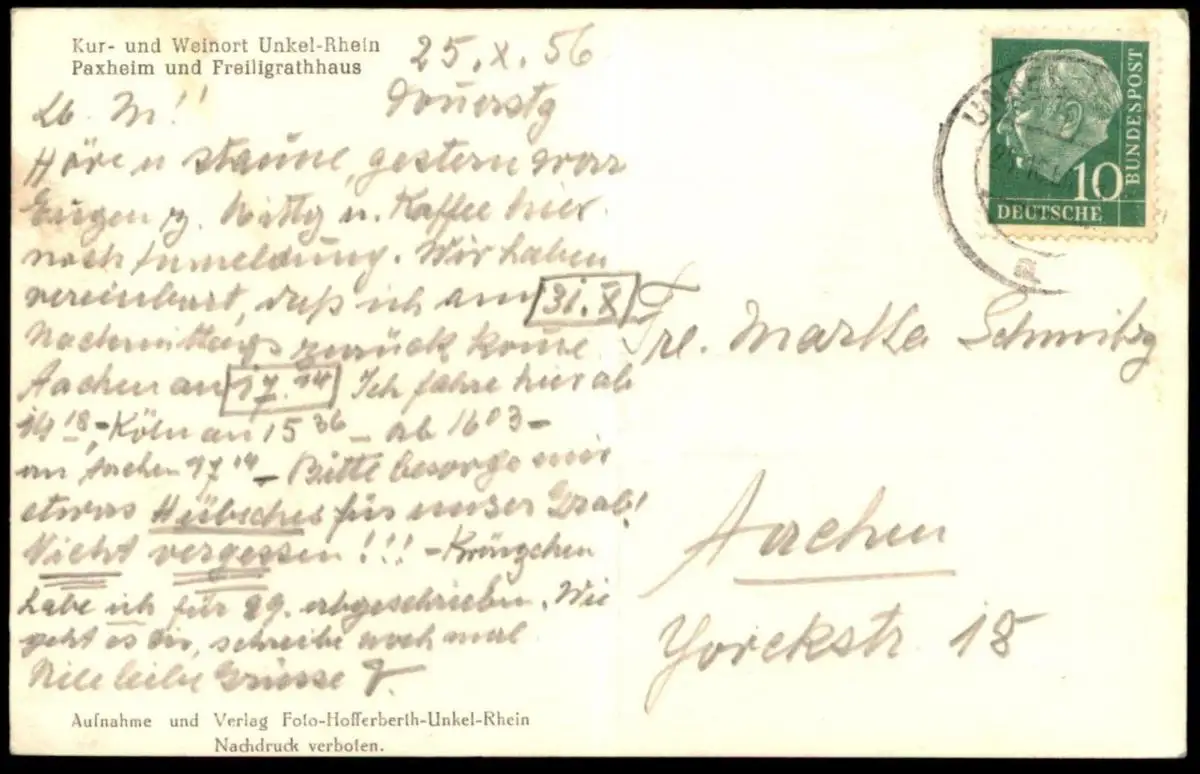 Kur- und Weinort Unkel-Rhein
Paxheim und Freiligrathhaus
25.X.56
Donerstg
Lb. M!!
Höre u staune, gestern war
Eugen z. Mittg u. Kaffee hier
nach Anmeldung. Wir haben
vereinbart, daß ich am 31.X
Nachmittags zurück kome
Aachen an 17.14 Ich fahre hier ab
14 18 - Köln an 15 36 - ab 16 03 -
an Aachen 17 14 - Bitte besorge mir
etwas Hübsches für unser Grab!
Nicht vergessen!!! - Kränzchen
habe ich für 29. abgeschrieben. Wie
geht es Dir, schreibe noch mal
Viele liebe Grüsse J.
Aufnahme und Verlag Foto-Hofferberth-Unkel-Rhein
Nachdruck verboten.
UNKEL
DEUTSCHE
BUNDESPOST
10
Frl. Martha Schmitz
Aachen
Yorckstr 18